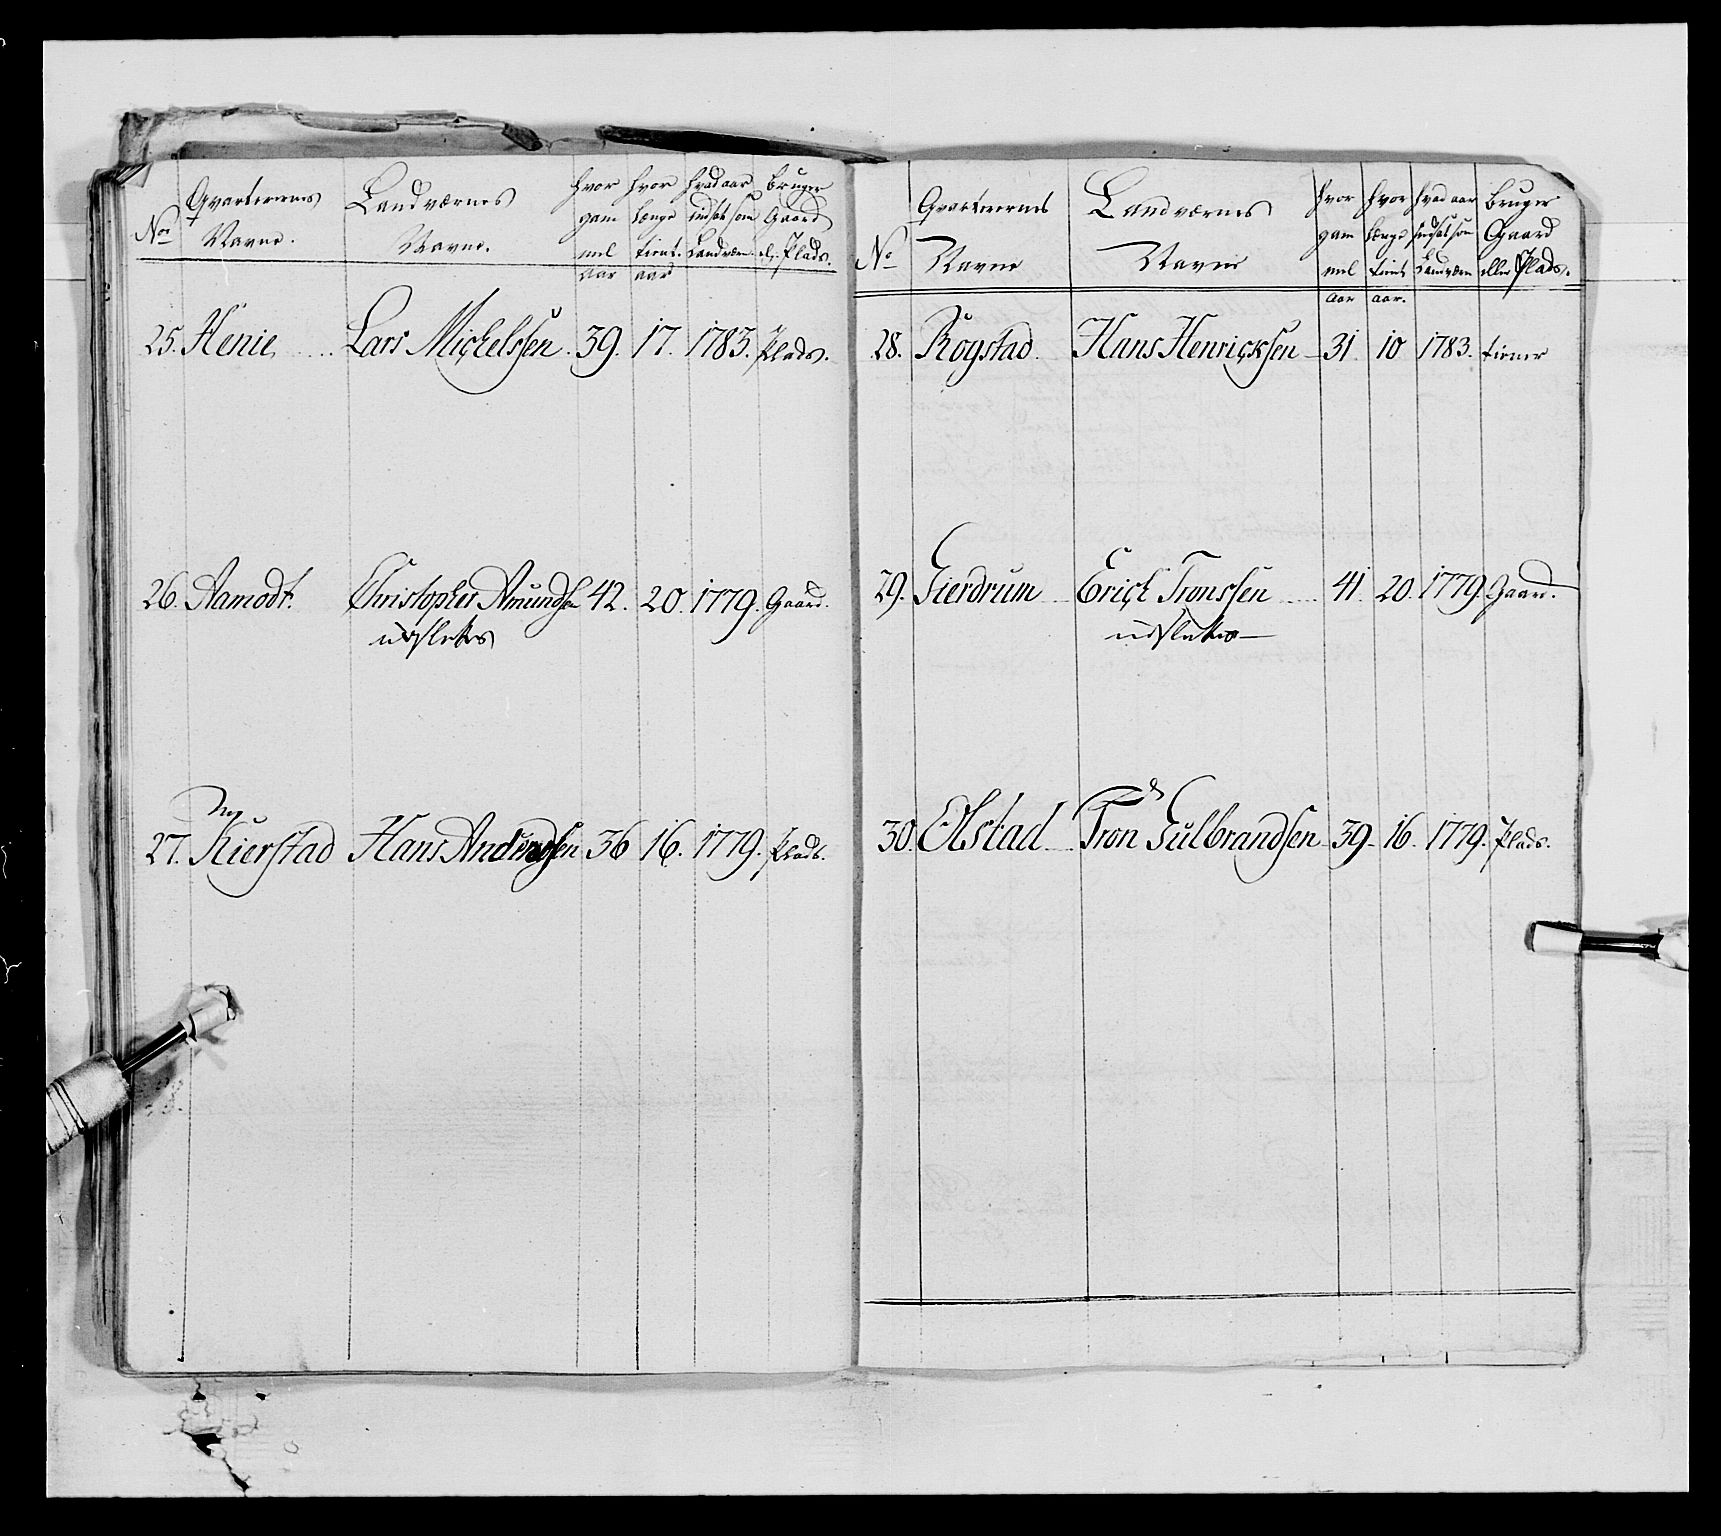 No Qvarterernes Navne. Landværnes Navne. hvor gam mel aar hvor længe tient. aar hvad aar indsat som Landværn Bruger Gaard el. Plads.
25. Henie Lars Michelssen 39. 17. 1783. Plads.
26. Aamodt. Christopher Amundsen 42. 20. 1779. Gaard.
udslettes
ny
27. Kierstad Hans Andersen 36 16. 1779. Plads.
No Qvarterernes Navne Landværnes Navne hvor gam mel aar hvor længe tient aar. hvad aar indsat som Landværn Bruger Gaard eller Plads.
28. Rogstad Hans Henricksen 31 10 1783. tiener
29. Gierdrum Erich Tronssen 41. 20. 1779. Gaard.
udslettes
30. Olstad Tron Gulbrandsen 39. 16. 1779. Plads.